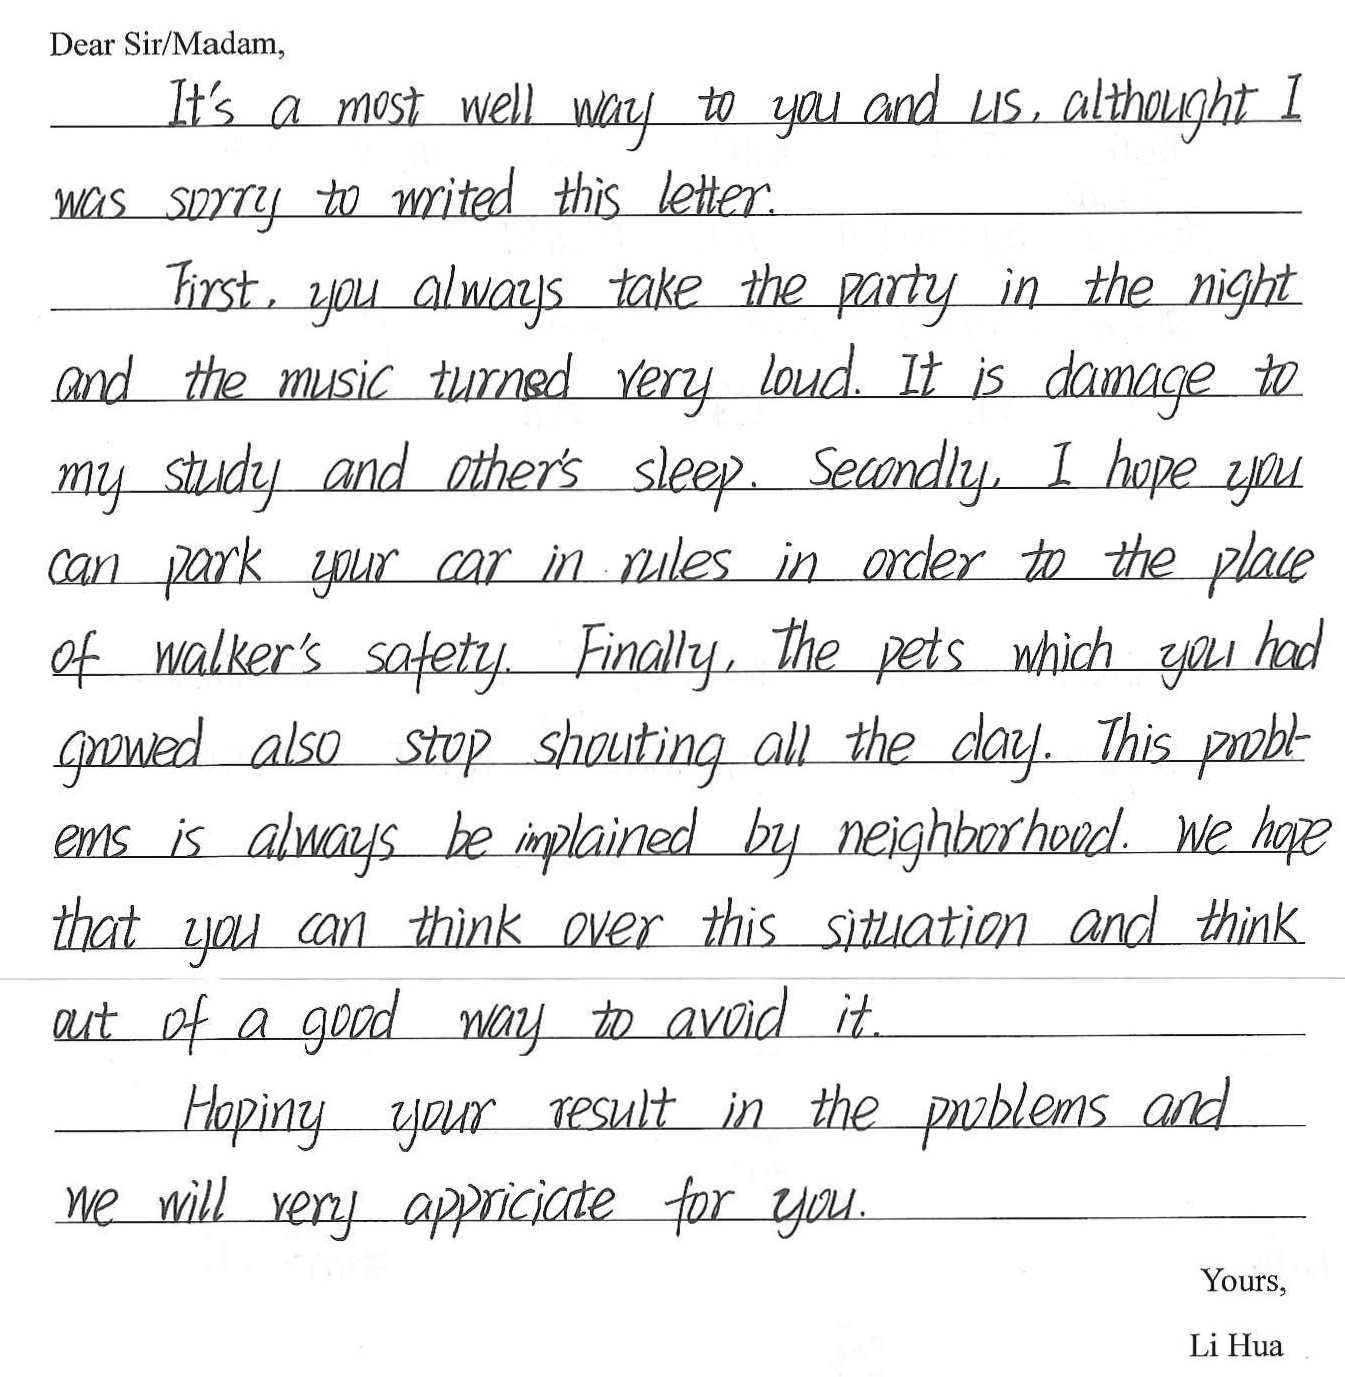 Dear Sir/Madam,
It's a most well way to you and us, althought I
was sorry to writed this letter.
First, you always take the party in the night
and the music turned very loud. It is damage to
my study and other's sleep. Secondly, I hope you
can park your car in rules in order to the place
of walker's safety. Finally, the pets which you had
growed also stop shouting all the day. This probl-
ems is always be implained by neighborhood. We hope
that you can think over this situation and think
out of a good way to avoid it.
Hoping your result in the problems and
we will very appriciate for you.
Yours,
Li Hua